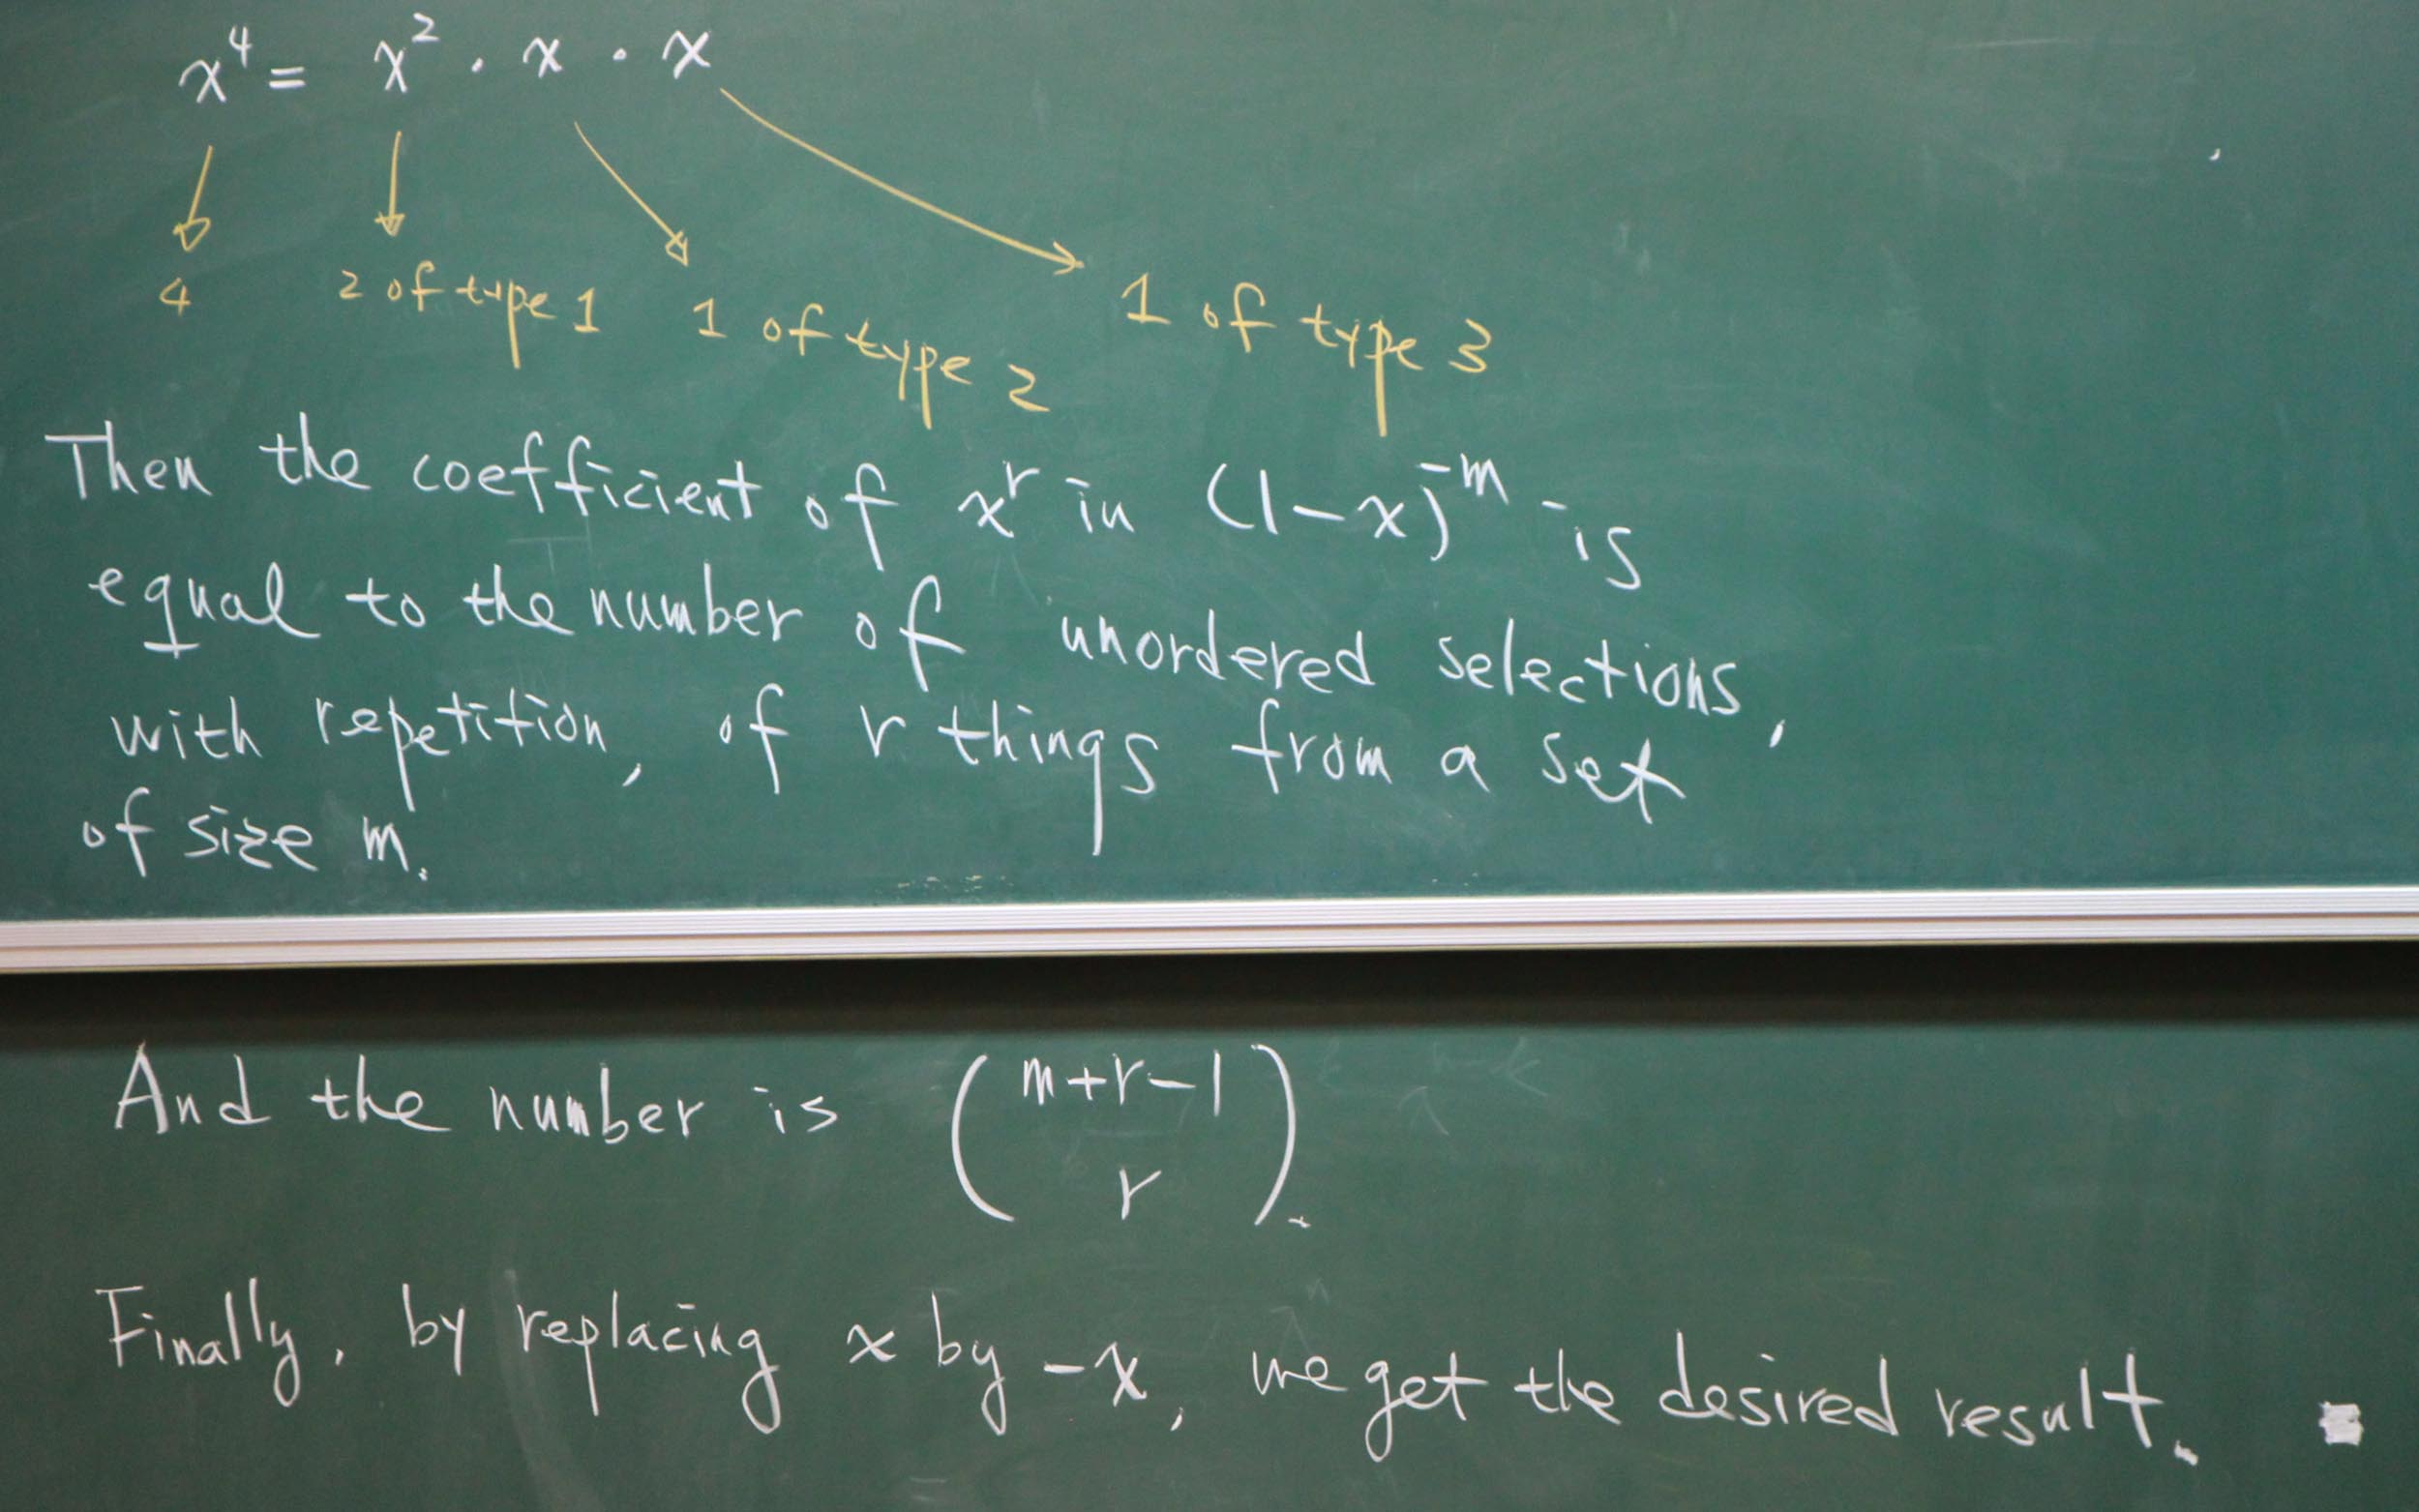 x⁴ = x² · x · x
4 2 of type 1 1 of type 2 1 of type 3
Then the coefficient of xʳ in (1-x)⁻ᵐ is
equal to the number of unordered selections,
with repetition, of r things from a set
of size m.
And the number is (m+r-1
r).
Finally, by replacing x by -x, we get the desired result.